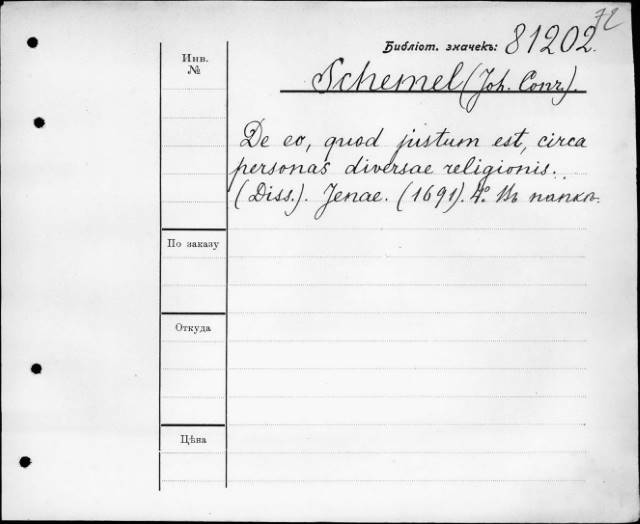 72
Библіот. значекъ: 81202.
Инв.
№
Schemel (Joh. Conr.).
De eo, quod justum est, circa
personas diversae religionis.
(Diss.). Jenae. (1691). 4°. Въ папкѣ.
По заказу
Откуда
Цѣна